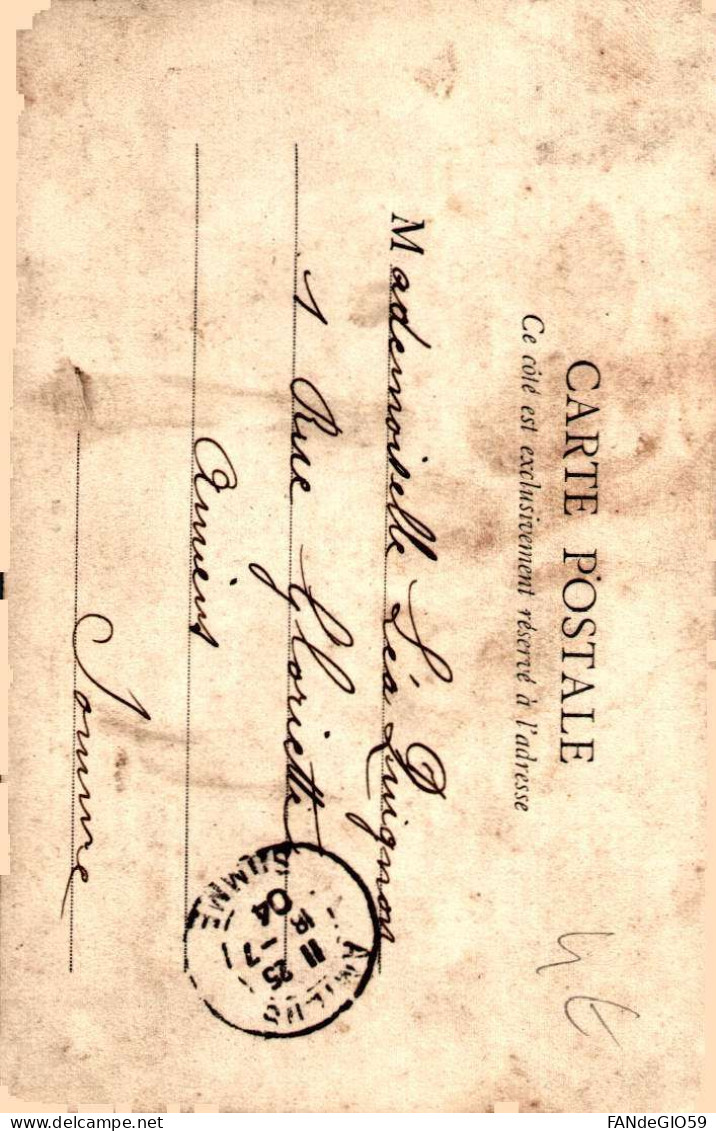 CARTE POSTALE
Ce côté est exclusivement réservé à l'adresse
Mademoiselle Léa
1 Rue Gloriette
Amiens
Somme
AMIENS
11
25 -7
04
SOMME
4 €
www.delcampe.net
FANdeGIO59